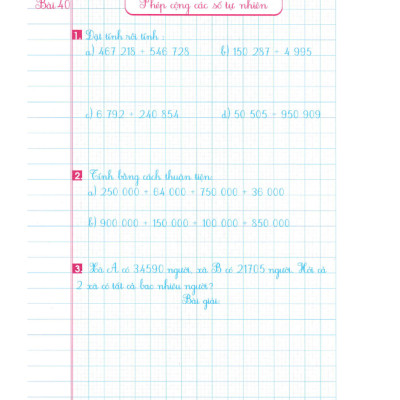 Bài 40
Phép cộng các số tự nhiên
1. Đặt tính rồi tính :
a) 467 218 + 546 728 b) 150 287 + 4 995
c) 6 792 + 240 854 d) 50 505 + 950 909
2 Tính bằng cách thuận tiện:
a) 250 000 + 64 000 + 750 000 + 36 000
b) 900 000 + 150 000 + 100 000 + 850 000
3. Xã A có 34590 người, xã B có 21705 người. Hỏi cả
2 xã có tất cả bao nhiêu người?
Bài giải: